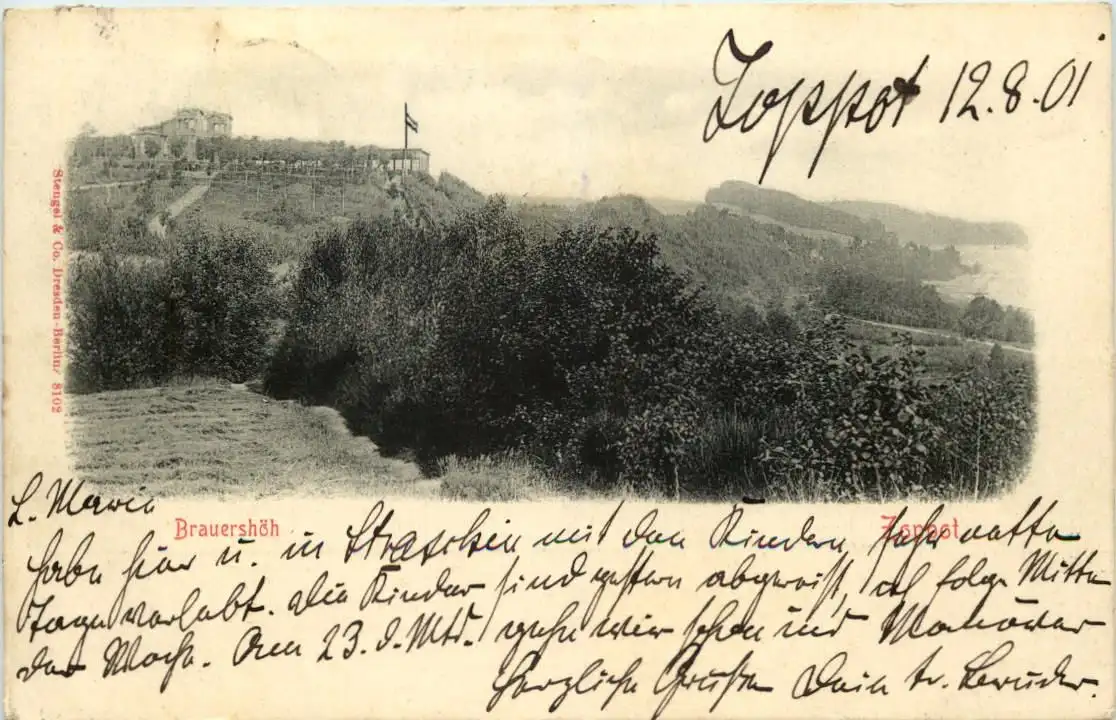 Zoppot 12.8.01
Stengel & Co. Dresden-Berlin 8102
L. Marie
Brauershöh
Zoppot
habe hier u. in Straschin mit den Kindern sehr nette
Tage verlebt. Die Kinder sind gestern abgereist, ich folge Mitte
der Woche. Am 23. d. Mts. gehen wir schon ins Manöver
Herzliche Grüße Dein tr. Bruder.